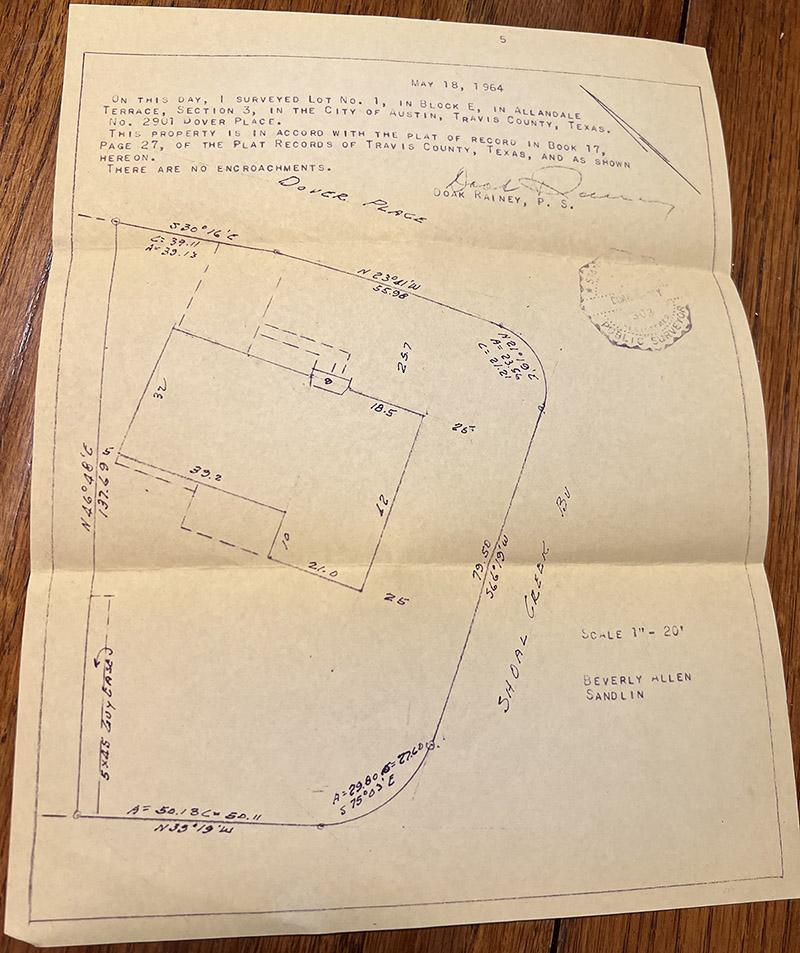 5
MAY 18, 1964
ON THIS DAY, I SURVEYED LOT NO. 1, IN BLOCK E, IN ALLANDALE
TERRACE, SECTION 3, IN THE CITY OF AUSTIN, TRAVIS COUNTY, TEXAS.
NO. 2901 DOVER PLACE.
THIS PROPERTY IS IN ACCORD WITH THE PLAT OF RECORD IN BOOK 17,
PAGE 27, OF THE PLAT RECORDS OF TRAVIS COUNTY, TEXAS, AND AS SHOWN
HEREON.
THERE ARE NO ENCROACHMENTS.
Doak Rainey
DOAK RAINEY, P. S.
DOVER PLACE
S30°16'E
C= 39.11
A= 39.13
N 23°41'W
55.98
N21°19'E
A= 23.56
C= 21.21
303
PUBLIC SURVEYOR
25.7
32
18.5
25
N46°48'E
137.69
5
39.2
42
10
21.0
25
79.50
S66°19'W
SHOAL CREEK BV
SCALE 1"- 20'
BEVERLY ALLEN
SANDLIN
5x45 GUY EASE
A= 29.80 C= 27.60
S 75°03'E
A= 50.13 C= 50.11
N39°19'W